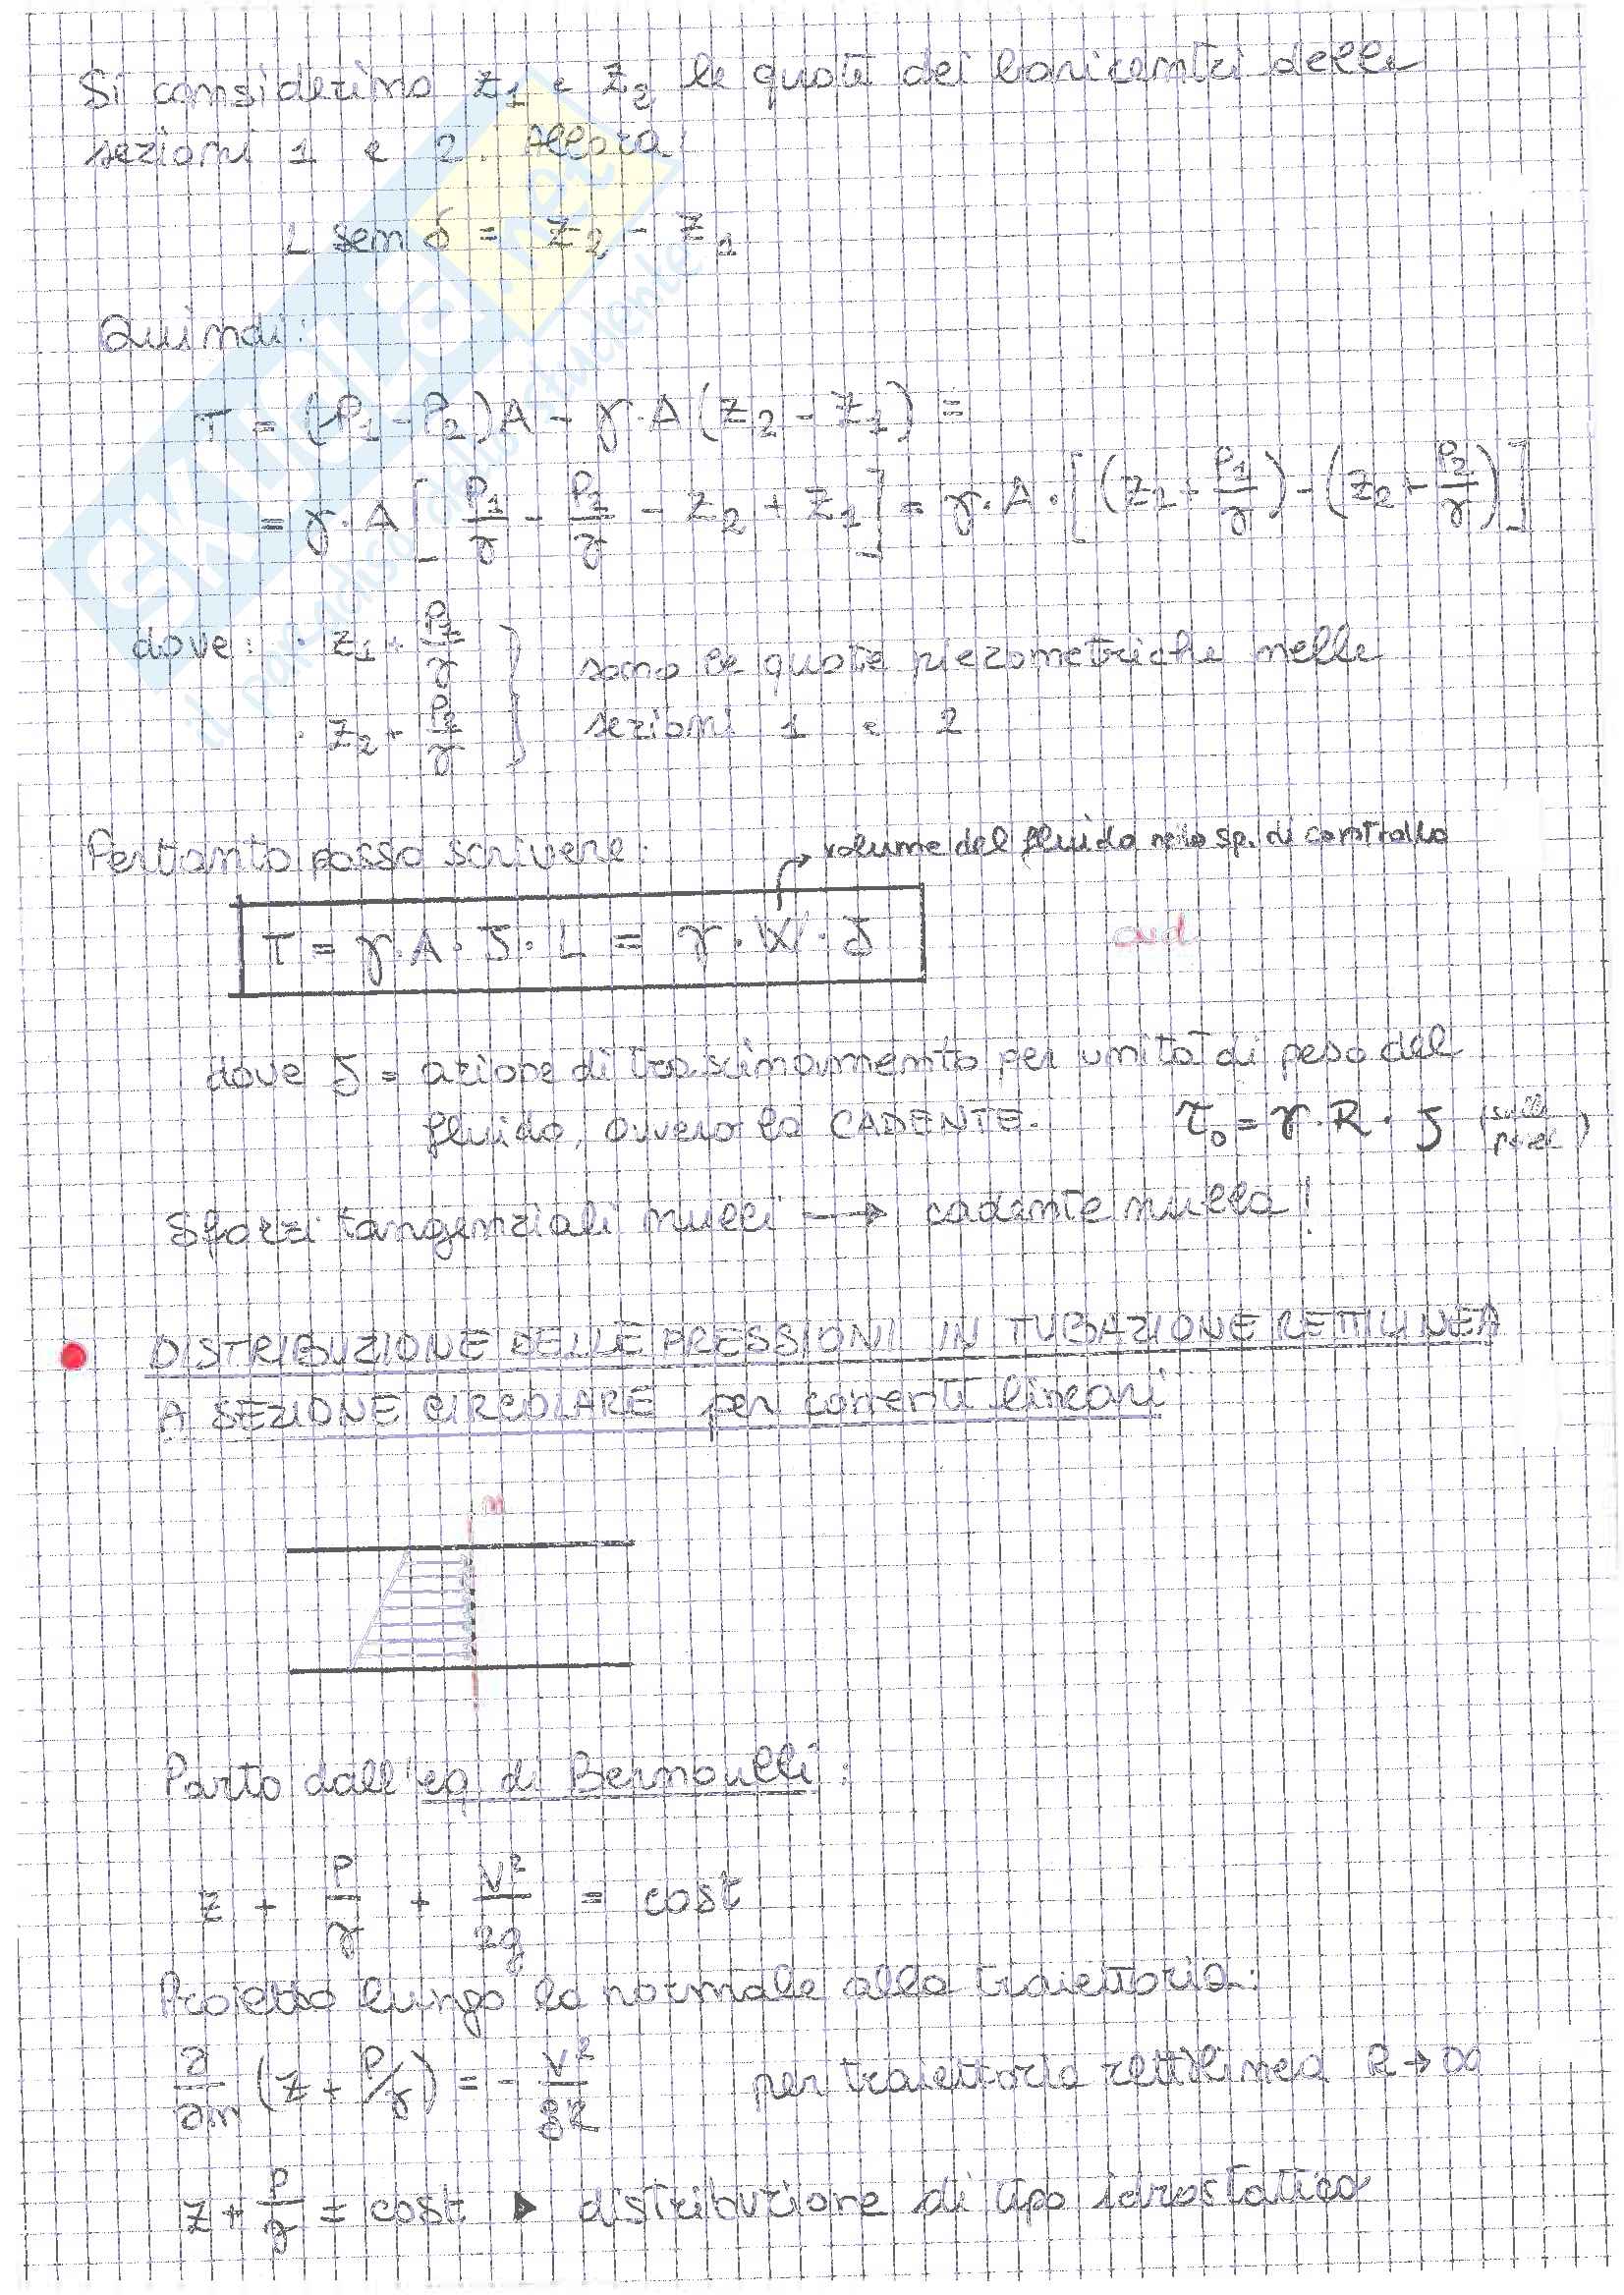 Si considerino z1 e z2 le quote dei baricentri delle
sezioni 1 e 2. Allora:
L sen δ = z2 - z1
Quindi:
T = (P1 - P2)A - γ·A(z2 - z1) =
= γ·A [P1/γ - P2/γ - z2 + z1] = γ·A·[(z1 + P1/γ) - (z2 + P2/γ)]
dove: · z1 + P1/γ } sono le quote piezometriche nelle
· z2 + P2/γ } sezioni 1 e 2
Pertanto posso scrivere: → volume del fluido nello sp. di controllo
T = γ·A·J·L = γ·W·J
cvd.
dove J = azione di trascinamento per unità di peso del
fluido, ovvero la CADENTE. τ0 = γ·R·J (sulle pareti)
Sforzi tangenziali nulli → cadente nulla!
• DISTRIBUZIONE DELLE PRESSIONI IN TUBAZIONE RETTILINEA
A SEZIONE CIRCOLARE per correnti lineari
n
Parto dall'eq di Bernoulli:
z + P/γ + V²/2g = cost
Proietto lungo la normale alla traiettoria:
∂/∂n (z + P/γ) = - V²/gR per traiettoria rettilinea R → ∞
z + P/γ = cost ▶ distribuzione di tipo idrostatico